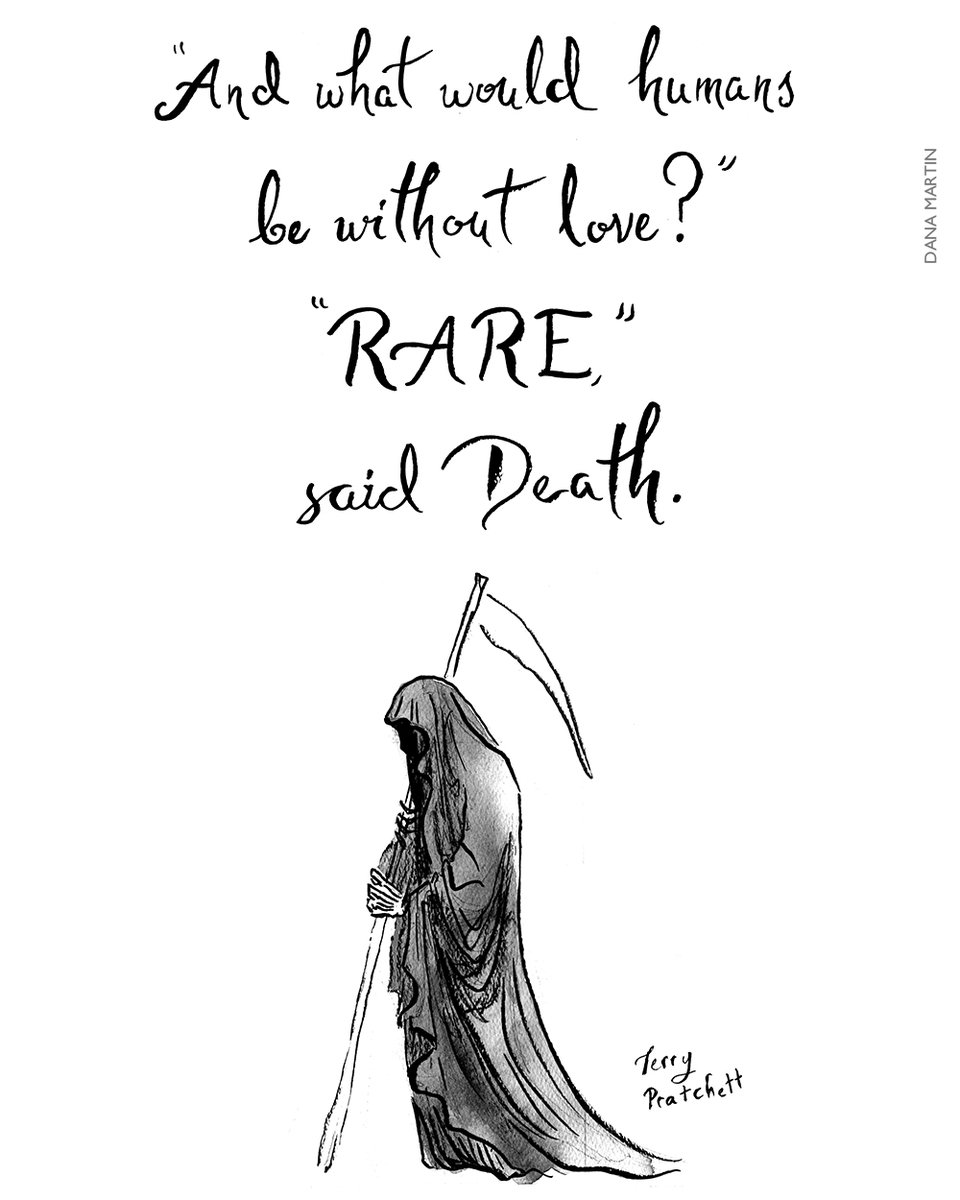 “And what would humans
be without love?”
“RARE,”
said Death.
Terry
Pratchett
DANA MARTIN